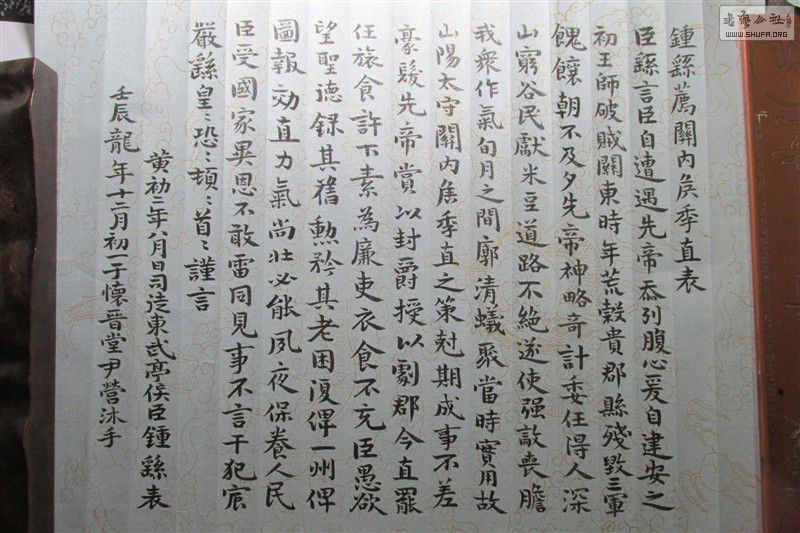 鍾繇薦關內矦季直表
臣繇言臣自遭遇先帝忝列腹心爰自建安之
初王師破賊關東時年荒穀貴郡縣殘毀三軍
餽饟朝不及夕先帝神略奇計委任得人深
山窮谷民獻米豆道路不絕遂使强敵喪膽
我衆作氣旬月之間廓清蟻聚當時實用故
山陽太守關內矦季直之策尅期成事不差
豪髮先帝賞以封爵授以劇郡今直罷
任旅食許下素為廉吏衣食不充臣愚欲
望聖德錄其舊勳矜其老困復俾一州俾
圖報効直力氣尚壯必能夙夜保養人民
臣受國家異恩不敢雷同見事不言干犯宸
嚴繇皇〻恐〻頓〻首〻謹言
黃初二年八月日司徒東武亭侯臣鍾繇表
壬辰龍年十二月初一于懷晉堂尹營沐手
書藝公社
WWW.SHUFA.ORG